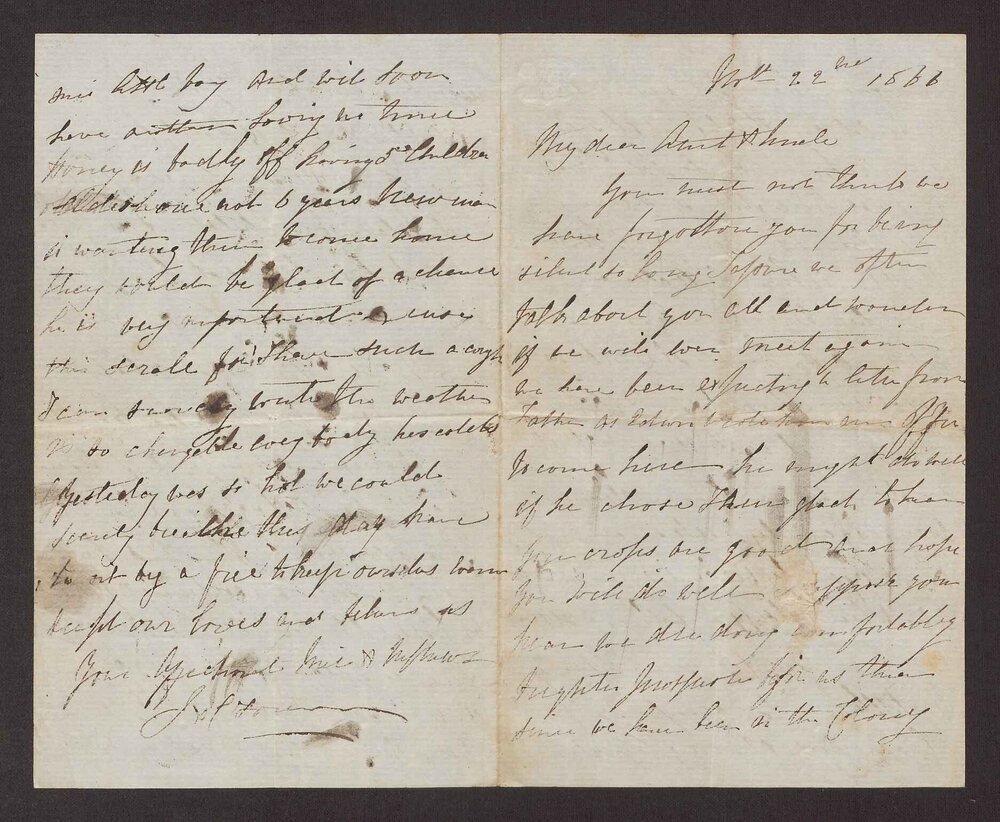 22nd 1866
My dear Aunt & Uncle
You must not think we
have forgotton you for being
silent so long before we often
talk about you all and wonder
if we will ever meet again
we have been expecting a letter from
Father as Edwin wrote him an offer
to come here he might do well
if he chose I than glad to hear
your crops are good and hope
you will do well suppose you
hear we are doing comfortably
brighter prospects before us than
since we have been in the Colony
one little boy and will soon
have another Loving no time
Honey is badly off having 5 Children
oldest one not 6 years Newman
is wanting them to come home
they would be glad of a chance
he is very unfortunate excuse
this scrall for I have such a cough
I can scarcely write the weather
is so changeble every body has colds
yesterday was so hot we could
scarcely breathe this day have
to sit by a fire to keep ourselves warm
accept our loves and believe us
Your affectionate Niece & Nephews